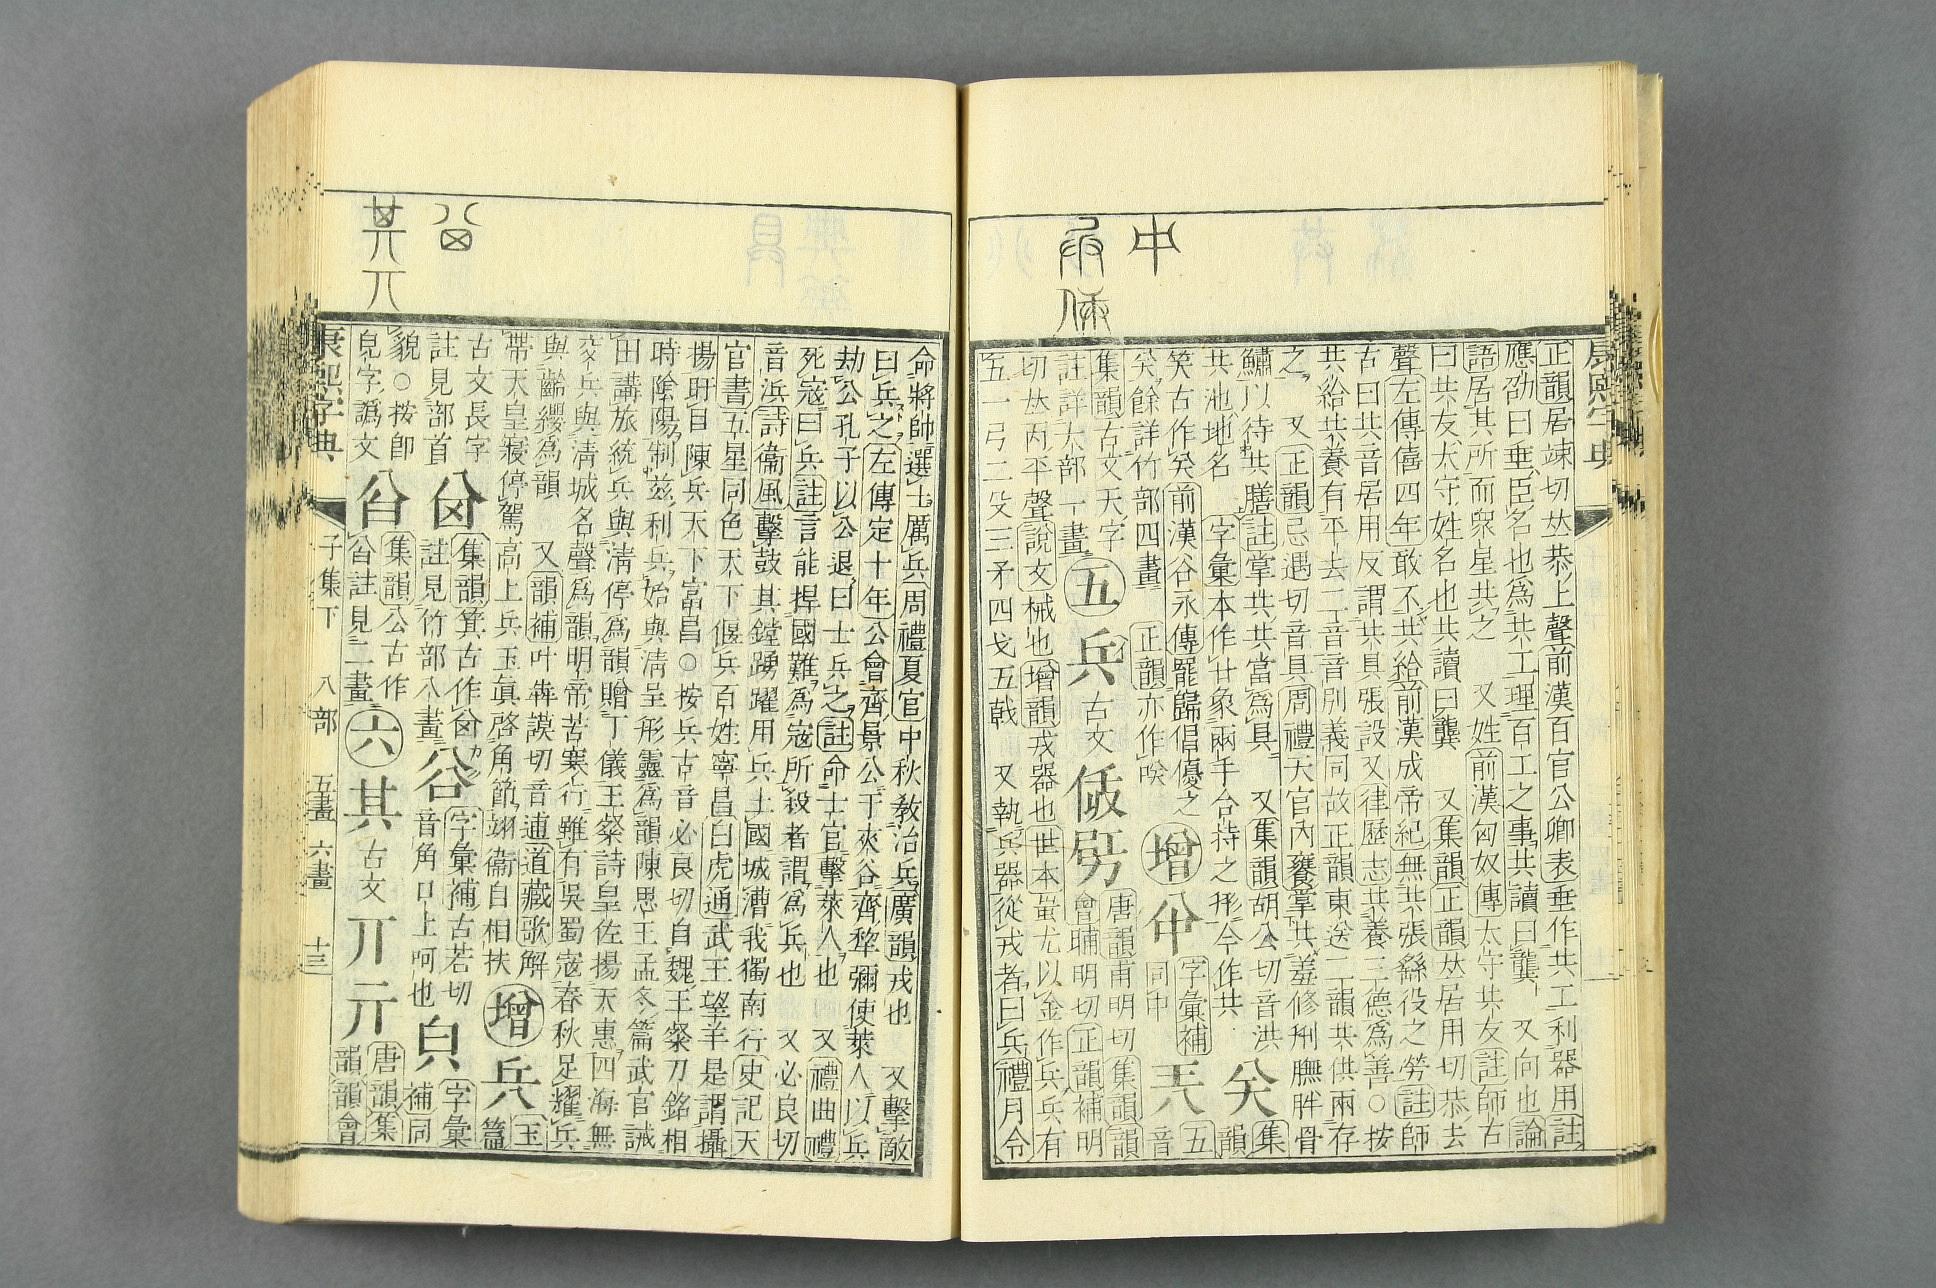 中
正韻居竦切𠀤恭上聲前漢百官公卿表垂作共工利器用註
應劭曰垂臣名也爲共工理百工之事共讀曰龔 又向也論
語居其所而衆星共之 又姓前漢匈奴傳太守共友註師古
曰共友太守姓名也共讀曰龔 又集韻正韻𠀤居用切恭去
聲左傳僖四年敢不共給前漢成帝紀無共張繇役之勞註師
古曰共音居用反謂共具張設又律歷志共養三德爲善○按
共給共養有平去二音音別義同故正韻東送二韻共供兩存
之 又正韻忌遇切音具周禮天官內饔掌共羞修刑膴胖骨
鱐以待共膳註掌共共當爲具 又集韻胡公切音洪
共池地名 字彙本作廾象兩手合持之形今作共 关 集韻
笑古作关前漢谷永傳罷歸倡優之
关餘詳竹部四畫 正韻亦作咲 增 㕣 字彙補
同中 兲 五音
集韻古文天字
註詳大部一畫 五 兵 古文 㑄 𠔗 唐韻甫明切集韻韻
會晡明切正韻補明
切𠀤丙平聲說文械也增韻戎器也世本蚩尤以金作兵兵有
五一弓二殳三矛四戈五戟 又執兵器從戎者曰兵禮月令
命將帥選士厲兵周禮夏官中秋敎治兵廣韻戎也 又擊敵
曰兵之左傳定十年公會齊景公于夾谷齊犂彌使萊人以兵
劫公孔子以公退曰士兵之註命士官擊萊人也 又禮曲禮
死寇曰兵註言能捍國難爲寇所殺者謂爲兵也 又必良切
音浜詩衞風擊鼓其鏜踴躍用兵土國城漕我獨南行史記天
官書五星同色天下偃兵百姓寧昌白虎通武王望羊是謂攝
揚盱目陳兵天下富昌○按兵古音必良切自魏王粲刀銘相
時陰陽制兹利兵始與淸呈形靈爲韻陳思王孟冬篇武官誡
田講旅統兵與淸停爲韻贈丁儀王粲詩皇佐揚天惠四海無
交兵與淸城名聲爲韻明帝苦寒行雖有吳蜀寇春秋足耀兵
與齡纓爲韻 又韻補叶犇謨切音逋道藏歌解
帶天皇寢停駕高上兵玉眞啓角節翊衞自相扶 增 兵 玉篇
古文長字
註見部首 集韻箕古作
註見竹部八畫 谷 字彙補古若切
音角口上呵也 皃 字彙
補同
貌○按卽
皃字譌文 集韻公古作
註見二畫 六 其 古文 丌 亓 唐韻集
韻韻會
康熙字典 子集下 八部 五畫 六畫 十三